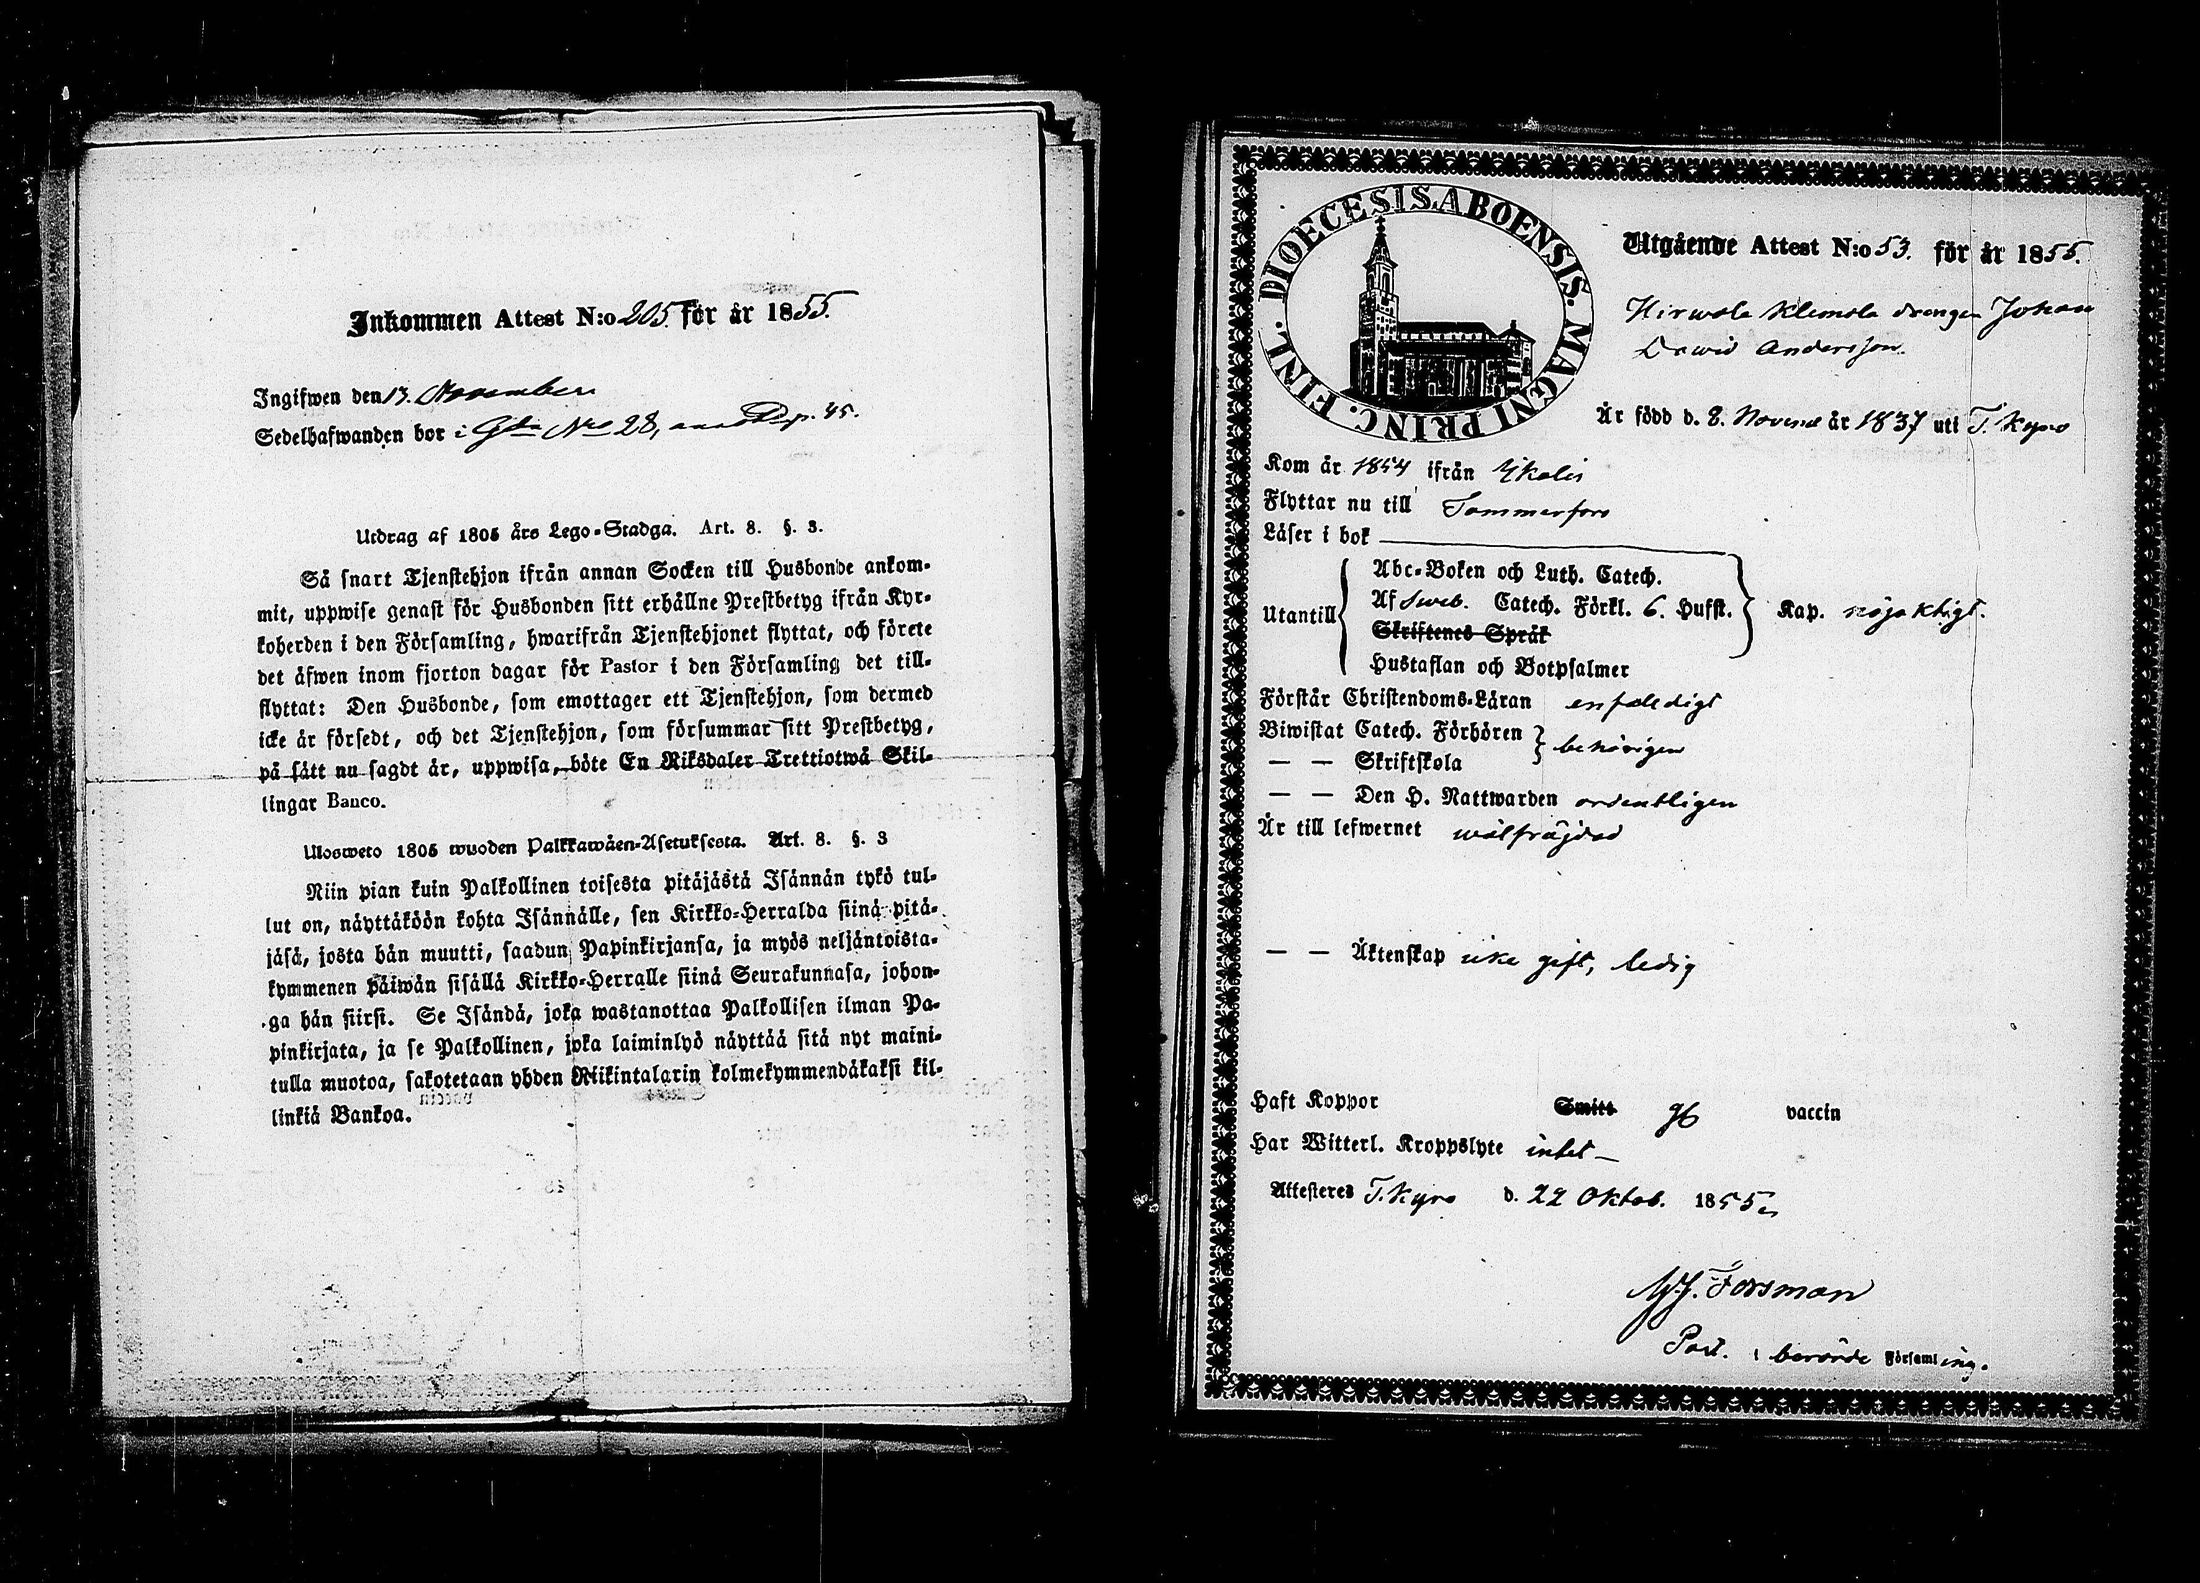 Inkommen Attest N:o 205. för år 1855.
Ingifwen den 13. November
Sedelhafwanden bor i Gdn Nro 28, p. 45.
Utdrag af 1805 års Lego-Stadga. Art. 8. §. 3.
Så snart Tjenstehjon ifrån annan Socken till Husbonde ankom-
mit, uppwise genast för Husbonden sitt erhållne Prestbetyg ifrån Kyr-
koherden i den Församling, hwarifrån Tjenstehjonet flyttat, och förete
det äfwen inom fjorton dagar för Pastor i den Församling det till-
flyttat: Den Husbonde, som emottager ett Tjenstehjon, som dermed
icke är försedt, och det Tjenstehjon, som försummar sitt Prestbetyg,
på sätt nu sagdt är, uppwisa, böte En Riksdaler Trettiotwå Skil-
lingar Banco.
Ulosweto 1805 wuoden Palkkawäen-Asetuksesta. Art. 8. §. 3
Niin pian kuin Palkollinen toisesta pitäjästä Isännän tykö tul-
lut on, näyttäköön kohta Isännälle, sen Kirkko-Herralda siinä pitä-
jäsä, josta hän muutti, saadun Papinkirjansa, ja myös neljäntoista-
kymmenen päiwän sisällä Kirkko-Herralle siinä Seurakunnasa, johon-
ga hän siirsi. Se Isändä, joka wastanottaa Palkollisen ilman Pa-
pinkirjata, ja se Palkollinen, joka laiminlyö näyttää sitä nyt maini-
tulla muotoa, sakotetaan yhden Riikintalarin kolmekymmendäkaksi kil-
linkiä Bankoa.
DIOECESIS ABOENSIS. MAGNI PRINC. FINL.
Utgående Attest N:o 53. för år 1855.
Hirwola Klemola drengen Johan
Dawid Andersson.
Är född d. 8. Novemb år 1837 uti T. Kyro
Kom år 1854 ifrån Ikalis
Flyttar nu till Tammerfors
Läser i bok
Utantill
Abc-Boken och Luth. Catech.
Af Sweb. Catech. Förkl. 6. Hufst.
Kap. nöjaktigt.
Skriftenes Språk
Hustaflan och Botpsalmer
Förstår Christendoms-Läran enfaldigt
Biwistat Catech. Förhören
behörigen
— — Skriftskola
— — Den H. Nattwarden ordentligen
Är till lefwernet wälfräjdad
— — Äktenskap icke gift, ledig
Haft Koppor Smitt gb vaccin
Har Witterl. Kroppslyte intet —
Attesteras T. Kyro d. 22 Oktob. 1855
Forsman
Past. i berörde Församling.